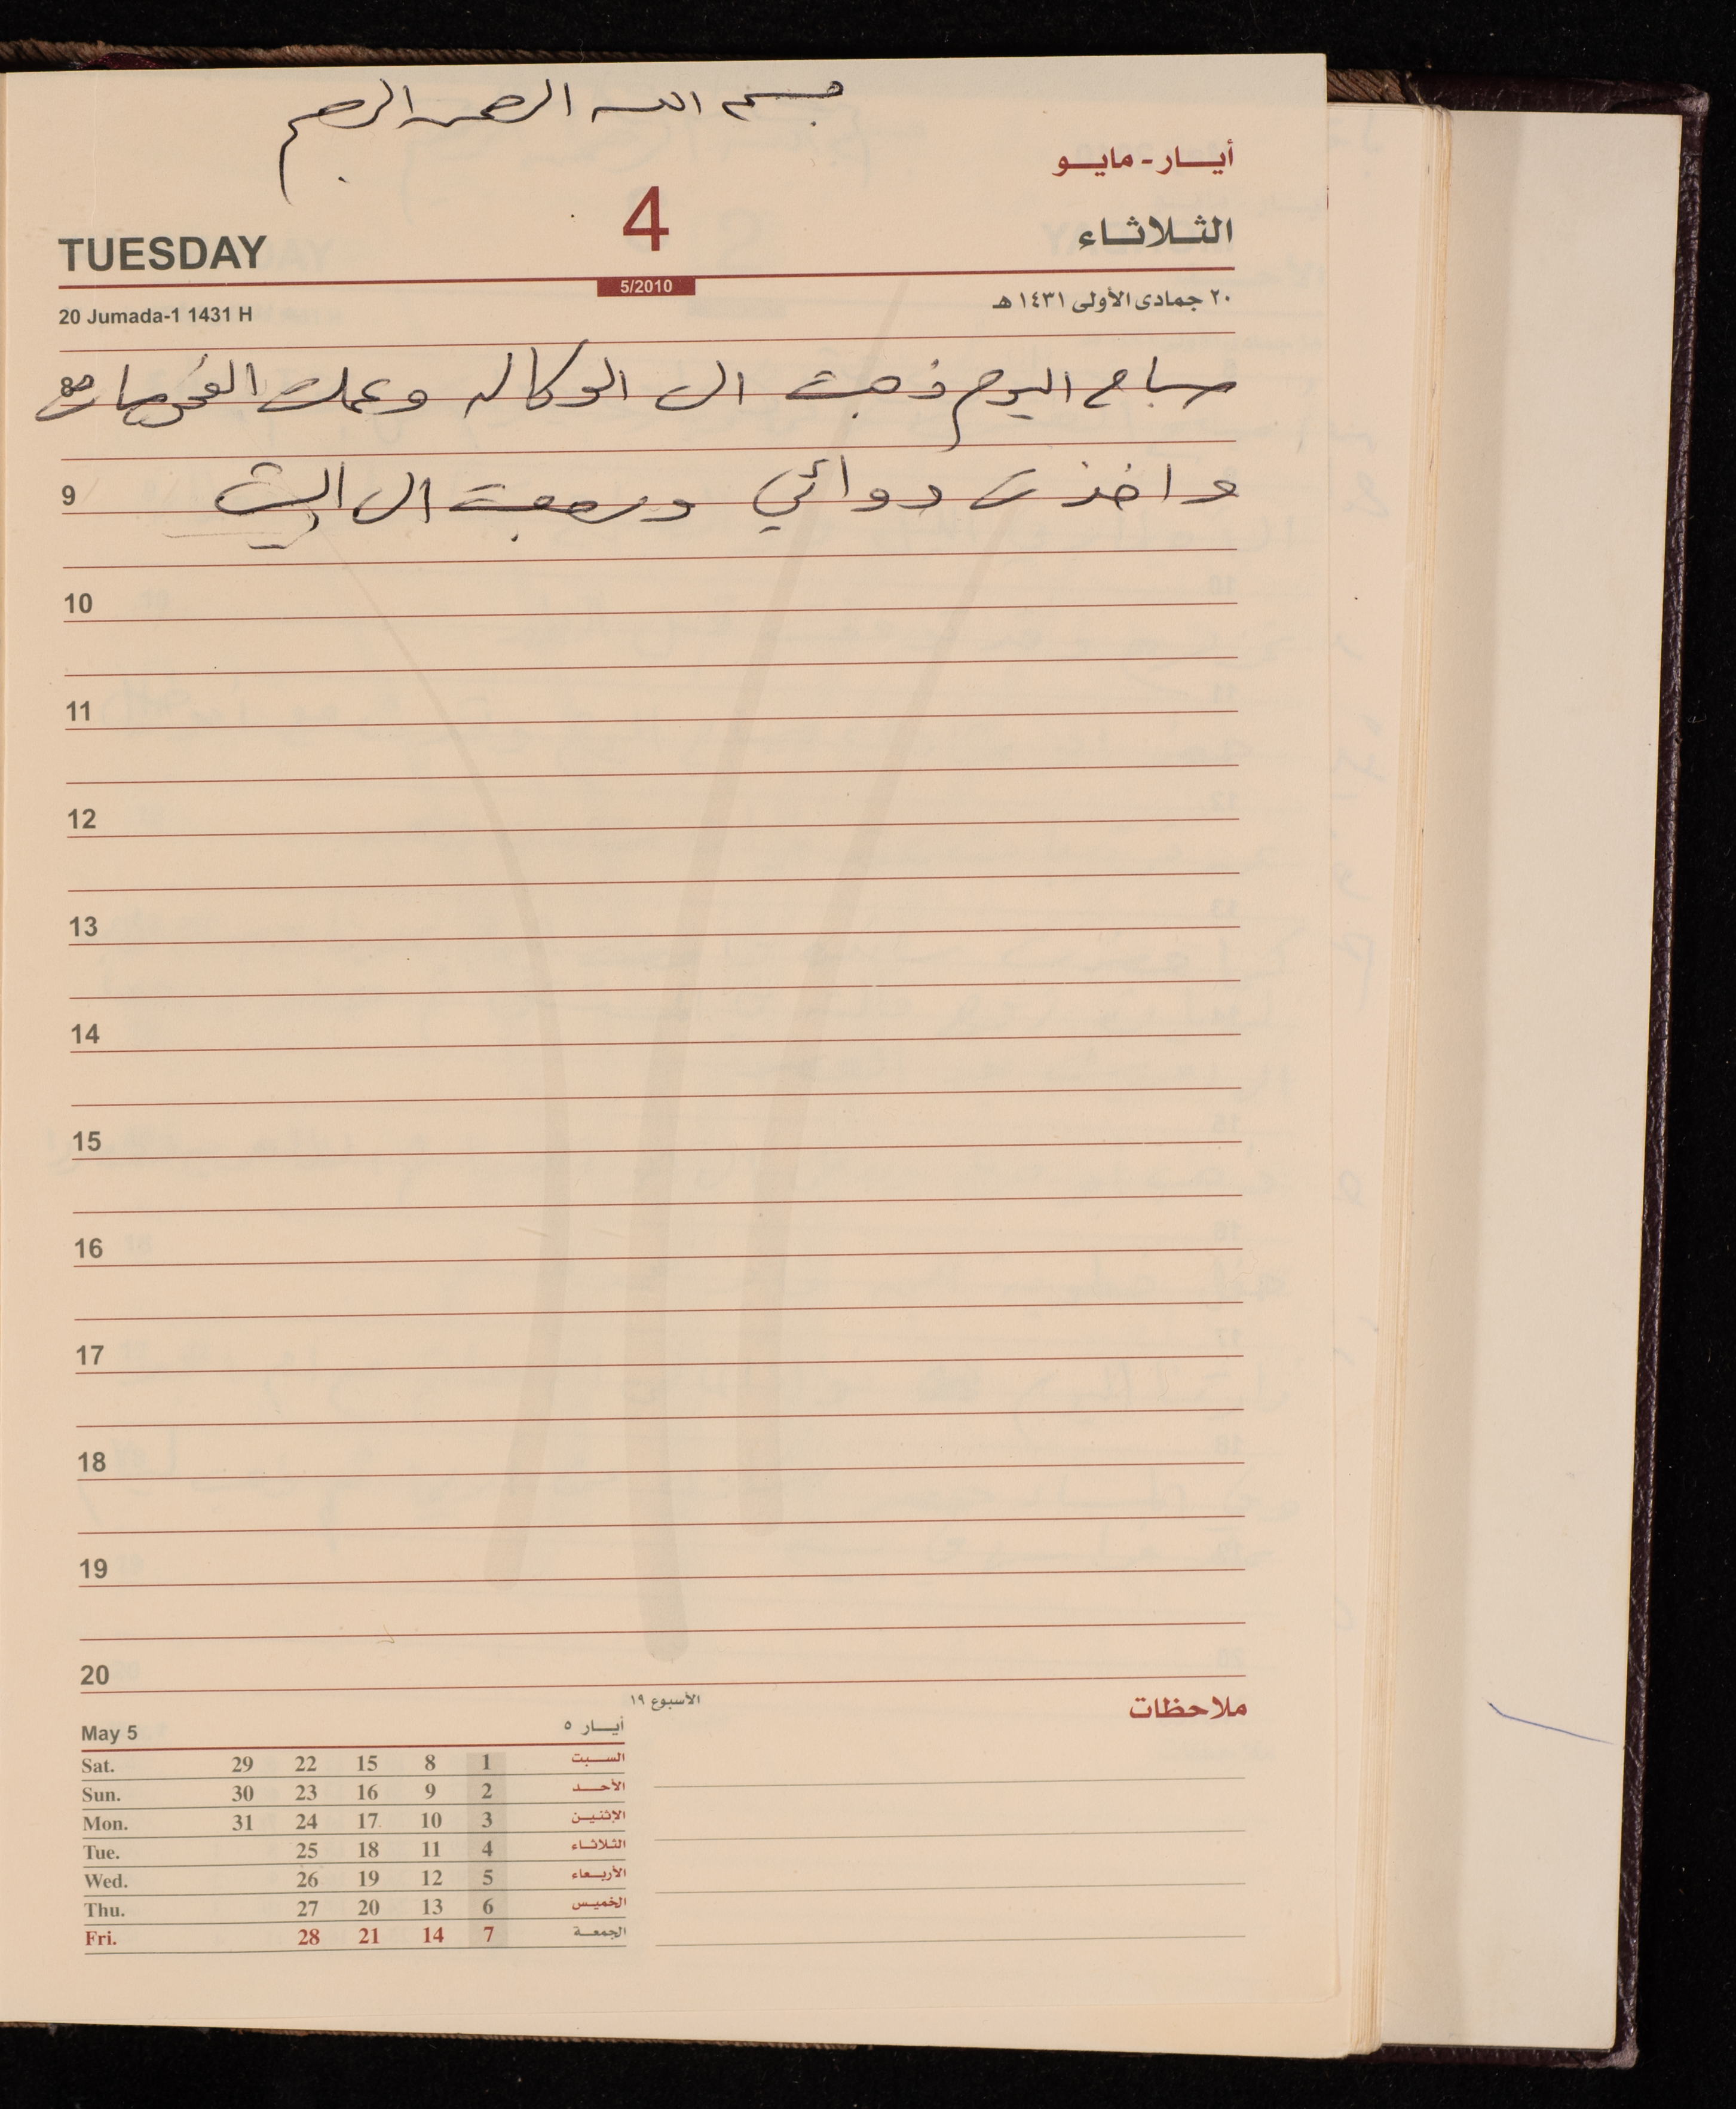 بسم الله الرحمن الرحيم
أيــار - مايــو
4
TUESDAY
الثــلاثــاء
5/2010
20 Jumada-1 1431 H
٢٠ جمادى الأولى ١٤٣١ هـ
صباح اليوم ذهبت الى الوكاله وعملت الفحوصات
8
واخذت دوائي ورجعت الى البيت
9
10
11
12
13
14
15
16
17
18
19
20
الأسبوع ١٩
ملاحظات
May 5 أيــار ٥
Sat. 29 22 15 8 1 السـبت
Sun. 30 23 16 9 2 الأحـد
Mon. 31 24 17 10 3 الإثنيـن
Tue. 25 18 11 4 الثلاثـاء
Wed. 26 19 12 5 الأربـعاء
Thu. 27 20 13 6 الخميـس
Fri. 28 21 14 7 الجمعـة